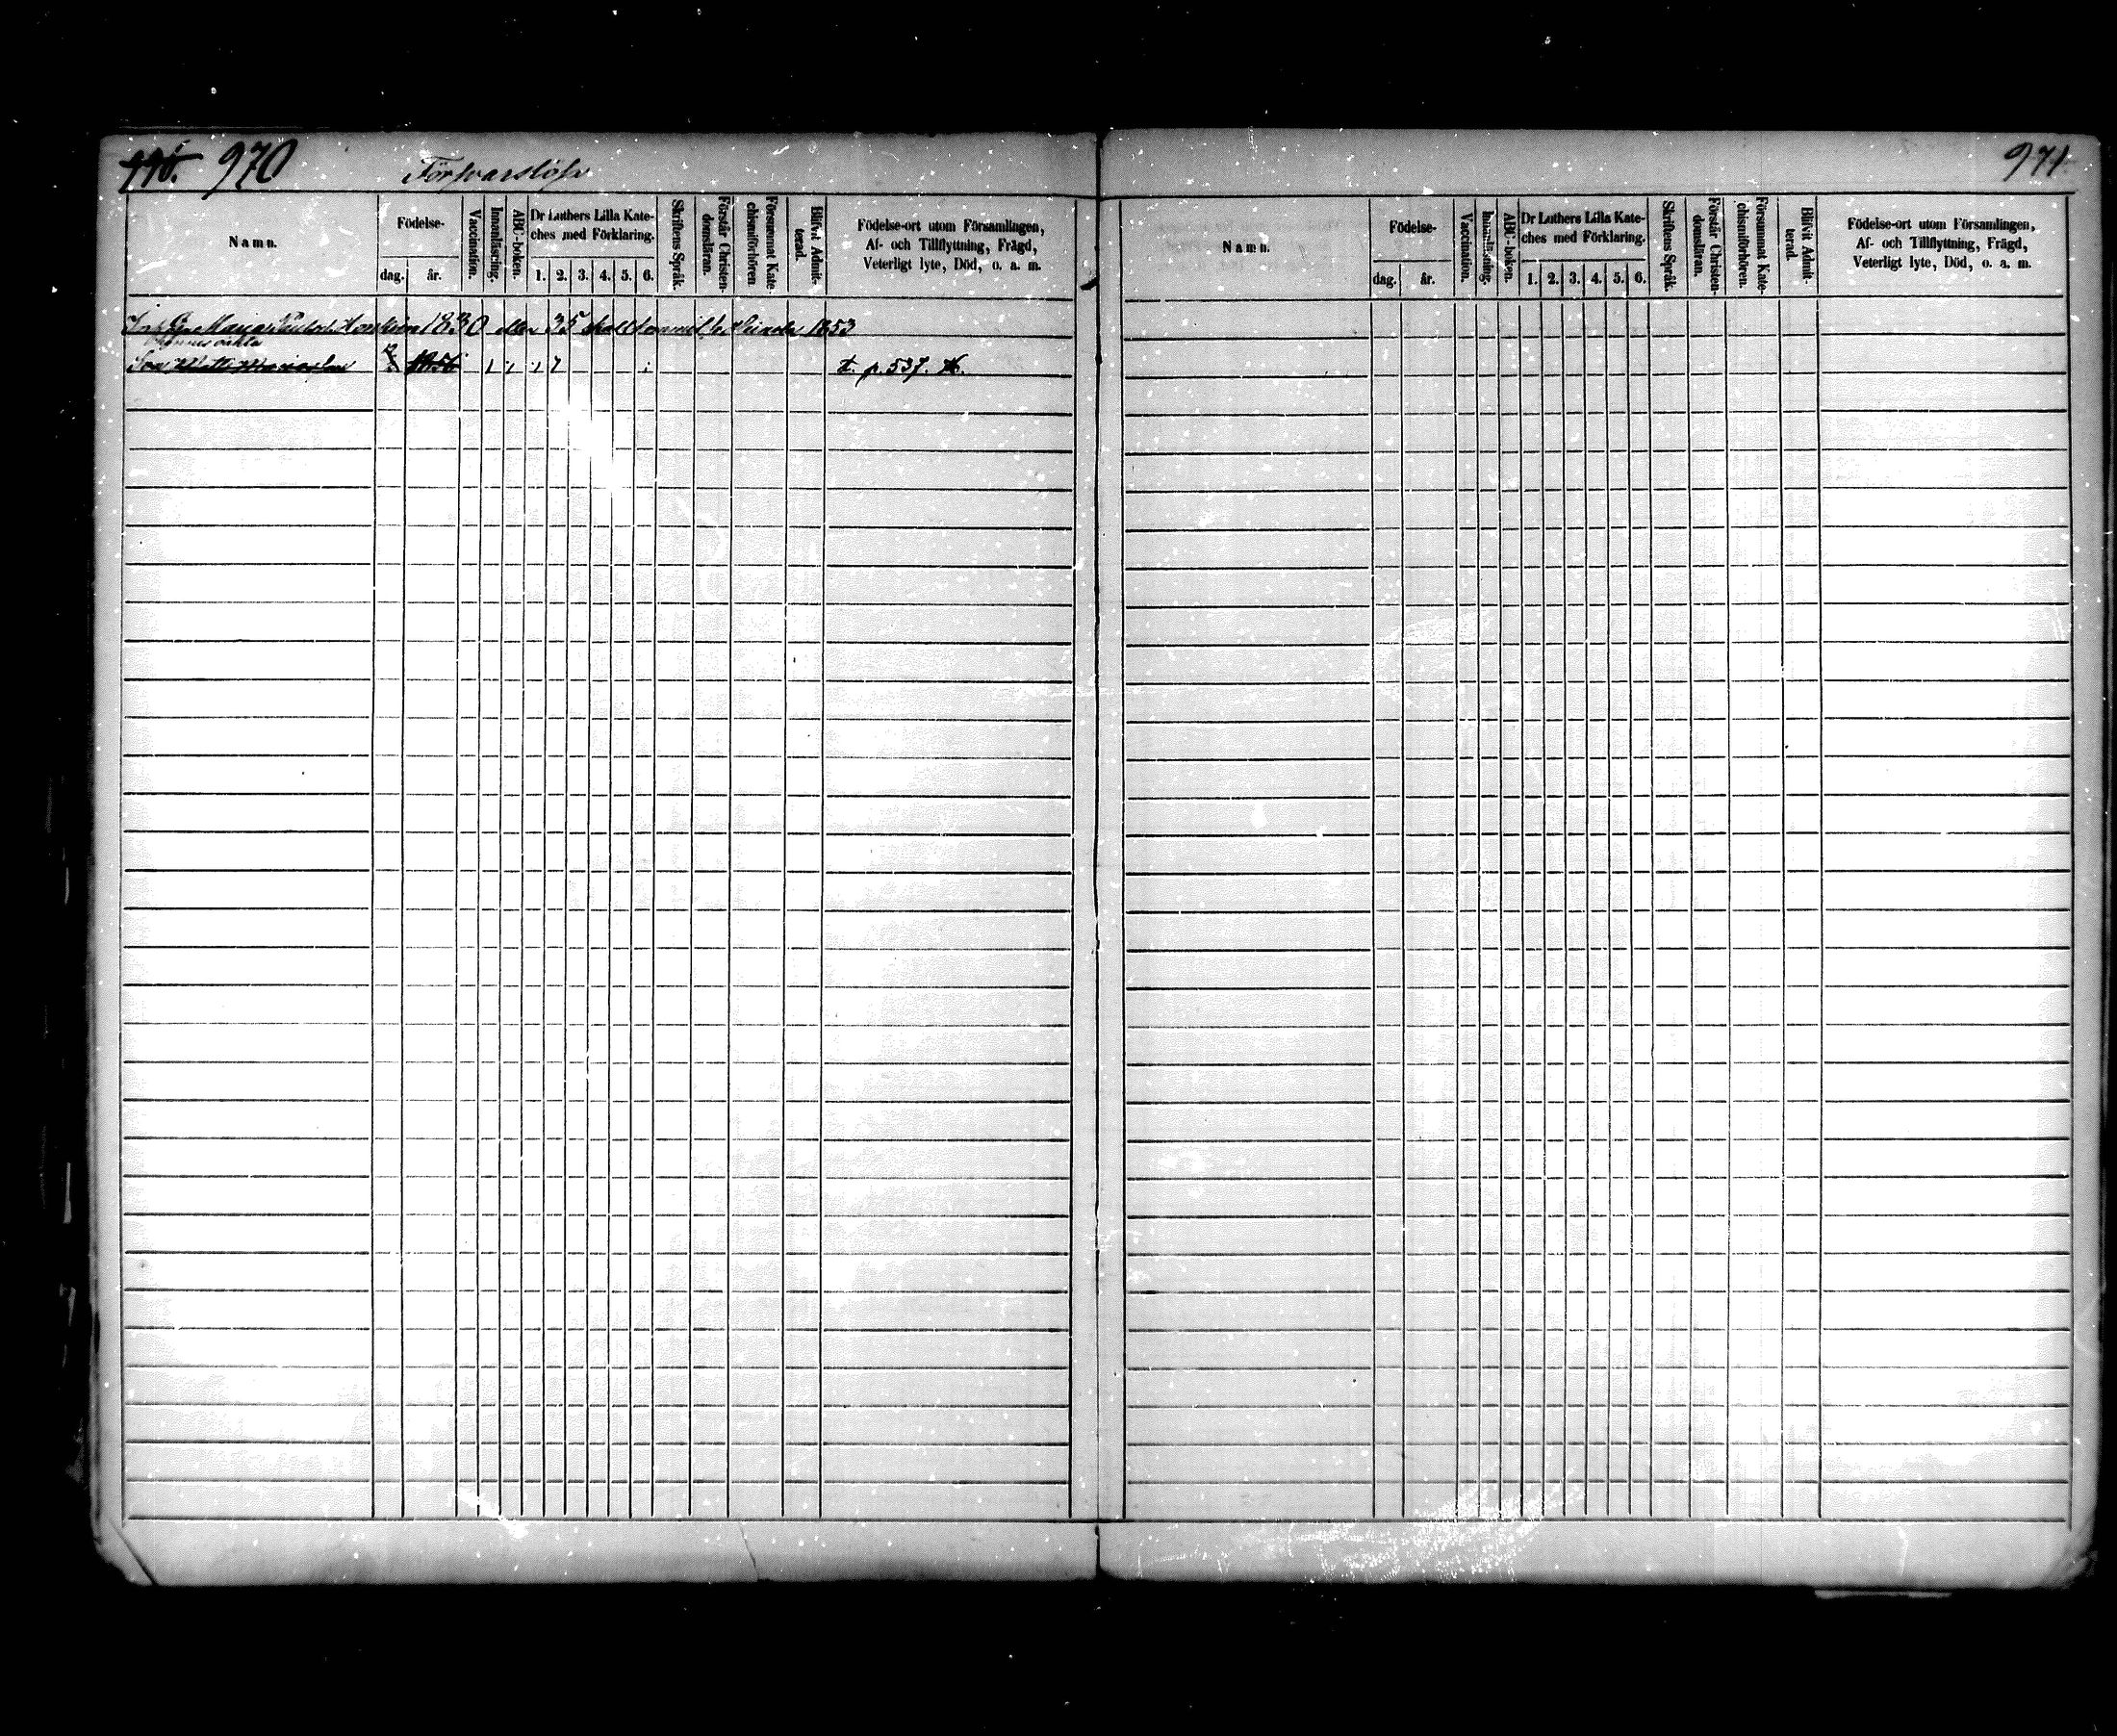 970
Försvarslöse
Namn.
Födelse-
dag. år.
Vaccination.
Innanläsning.
ABC-boken.
Dr Luthers Lilla Kate-
ches med Förklaring.
1. 2. 3. 4. 5. 6.
Skriftens Språk.
Förstår Christen-
domsläran.
Försummat Kate-
chismiförhören.
Blifvit Admit-
terad.
Födelse-ort utom Församlingen,
Af- och Tillflyttning, Frägd,
Veterligt lyte, Död, o. a. m.
Maja 1830 eller 35 1853
oäkta
Son Matts 1856 t. p. 537.
971
Namn.
Födelse-
dag. år.
Vaccination.
Innanläsning.
ABC-boken.
Dr Luthers Lilla Kate-
ches med Förklaring.
1. 2. 3. 4. 5. 6.
Skriftens Språk.
Förstår Christen-
domsläran.
Försummat Kate-
chismiförhören.
Blifvit Admit-
terad.
Födelse-ort utom Församlingen,
Af- och Tillflyttning, Frägd,
Veterligt lyte, Död, o. a. m.